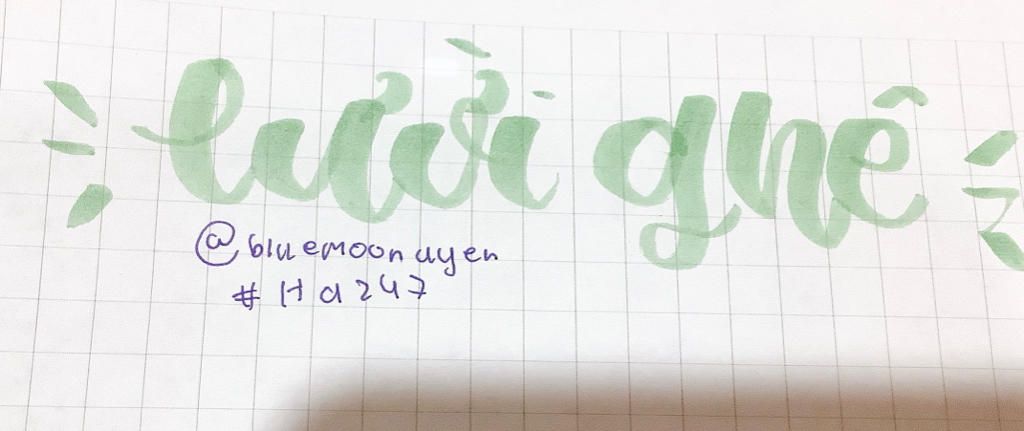 lười ghê
@bluemoonuyen
#Ha247